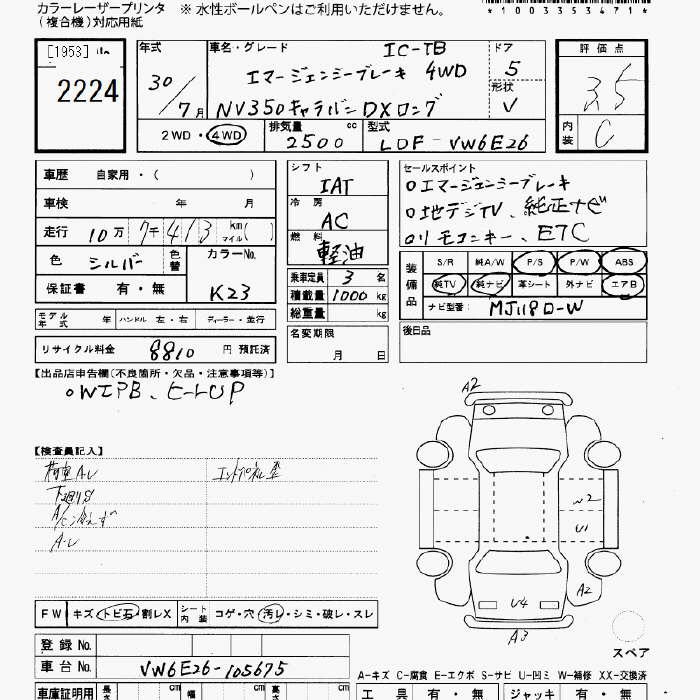 カラーレーザープリンタ
(複合機)対応用紙
※ 水性ボールペンはご利用いただけません。
*100353471*
[1953]
2224
年式
30/7月
車名・グレード
IC-TB
エマージェンシーブレーキ 4WD
NV350キャラバン DXロング
ドア
5
形状
V
評価点
3.5
内装
C
2WD・4WD
排気量
2500 cc
型式
LDF-VW6E26
車歴 自家用・( )
車検 年 月
走行 10万7千413 km マイル( )
色 シルバー 色替
カラーNo.
K23
保証書 有・無
モデル年式 年 ハンドル 左・右 ディーラー・並行
リサイクル料金 8810 円 預託済
シフト
IAT
冷房
AC
燃料
軽油
乗車定員 3 名
積載量 1000 kg
総重量 kg
名変期限
月 日
セールスポイント
○エマージェンシーブレーキ
○地デジTV、純正ナビ
○リモコンキー、ETC
装備品
S/R 純A/W P/S P/W ABS
純TV 純ナビ 革シート 外ナビ エアB
ナビ型番: MJ118D-W
後日品
【出品店申告欄(不良箇所・欠品・注意事項等)】
○WIPB、ヒートUP
【検査員記入】
下廻りS
A/C冷えず
A2
W2
U1
A2
U4
A3
スペア
FW キズ・トビ石・割レX
シート内装 コゲ・穴・汚レ・シミ・破レ・スレ
登録No.
車台No. VW6E26-105675
A-キズ C-腐食 E-エクボ S-サビ U-凹ミ W-補修 XX-交換済
車庫証明用 長さ cm 幅 cm 高さ cm
工具 有・無 ジャッキ 有・無